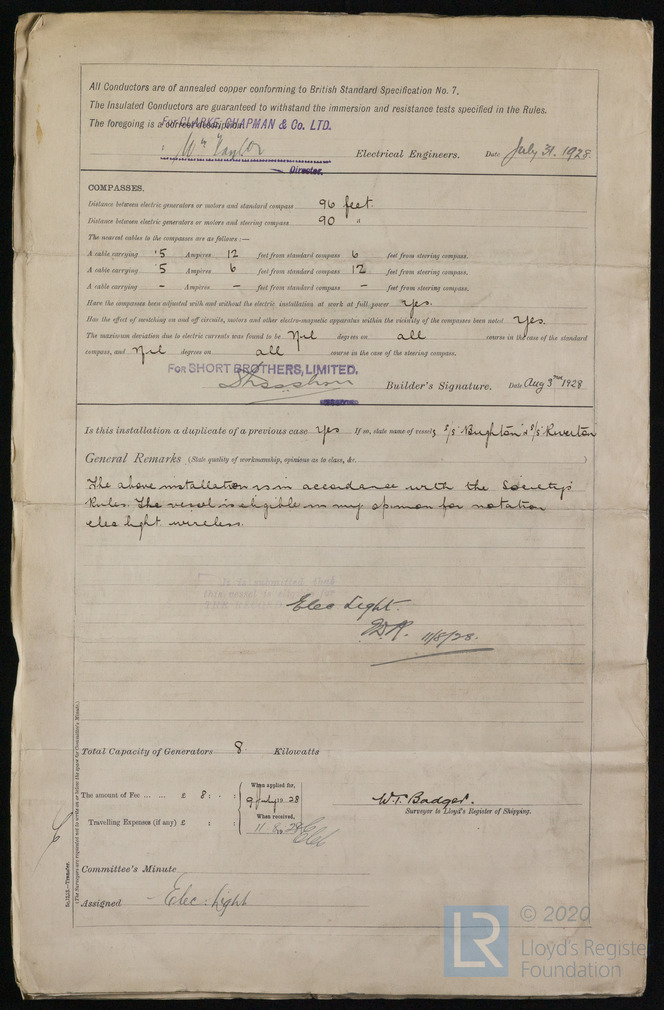 All Conductors are of annealed copper conforming to British Standard Specification No. 7.
The Insulated Conductors are guaranteed to withstand the immersion and resistance tests specified in the Rules.
The foregoing is a correct description.
For CLARKE, CHAPMAN & Co. LTD.
Wm Taylor Electrical Engineers. Date July 31. 1928.
Director.
COMPASSES.
Distance between electric generators or motors and standard compass 96 feet.
Distance between electric generators or motors and steering compass 90 "
The nearest cables to the compasses are as follows :—
A cable carrying 5 Ampères 12 feet from standard compass 6 feet from steering compass.
A cable carrying 5 Ampères 6 feet from standard compass 12 feet from steering compass.
A cable carrying – Ampères – feet from standard compass – feet from steering compass.
Have the compasses been adjusted with and without the electric installation at work at full power yes.
Has the effect of switching on and off circuits, motors and other electro-magnetic apparatus within the vicinity of the compasses been noted yes.
The maximum deviation due to electric currents was found to be Nil degrees on all course in the case of the standard
compass, and Nil degrees on all course in the case of the steering compass.
FOR SHORT BROTHERS, LIMITED.
Builder's Signature. Date Aug 3rd 1928
Is this installation a duplicate of a previous case yes If so, state name of vessels S/S "Brighton" & S/S "Riverton"
General Remarks (State quality of workmanship, opinions as to class, &c. )
The above installation is in accordance with the Society's
Rules. The vessel is eligible in my opinion for notation
elec light. wireless.
It is submitted that
this vessel is eligible for
THE RECORD
Elec Light.
11/8/28.
Total Capacity of Generators 8 Kilowatts
The amount of Fee ... ... £ 8 : :
When applied for,
9 July 1928
Travelling Expenses (if any) £ : :
When received,
11.8.28
W. T. Badger.
Surveyor to Lloyd's Register of Shipping.
Committee's Minute
Assigned Elec: Light
(The Surveyors are requested not to write on or below the space for Committee's Minute.)
© 2020
LR
Lloyd's Register
Foundation